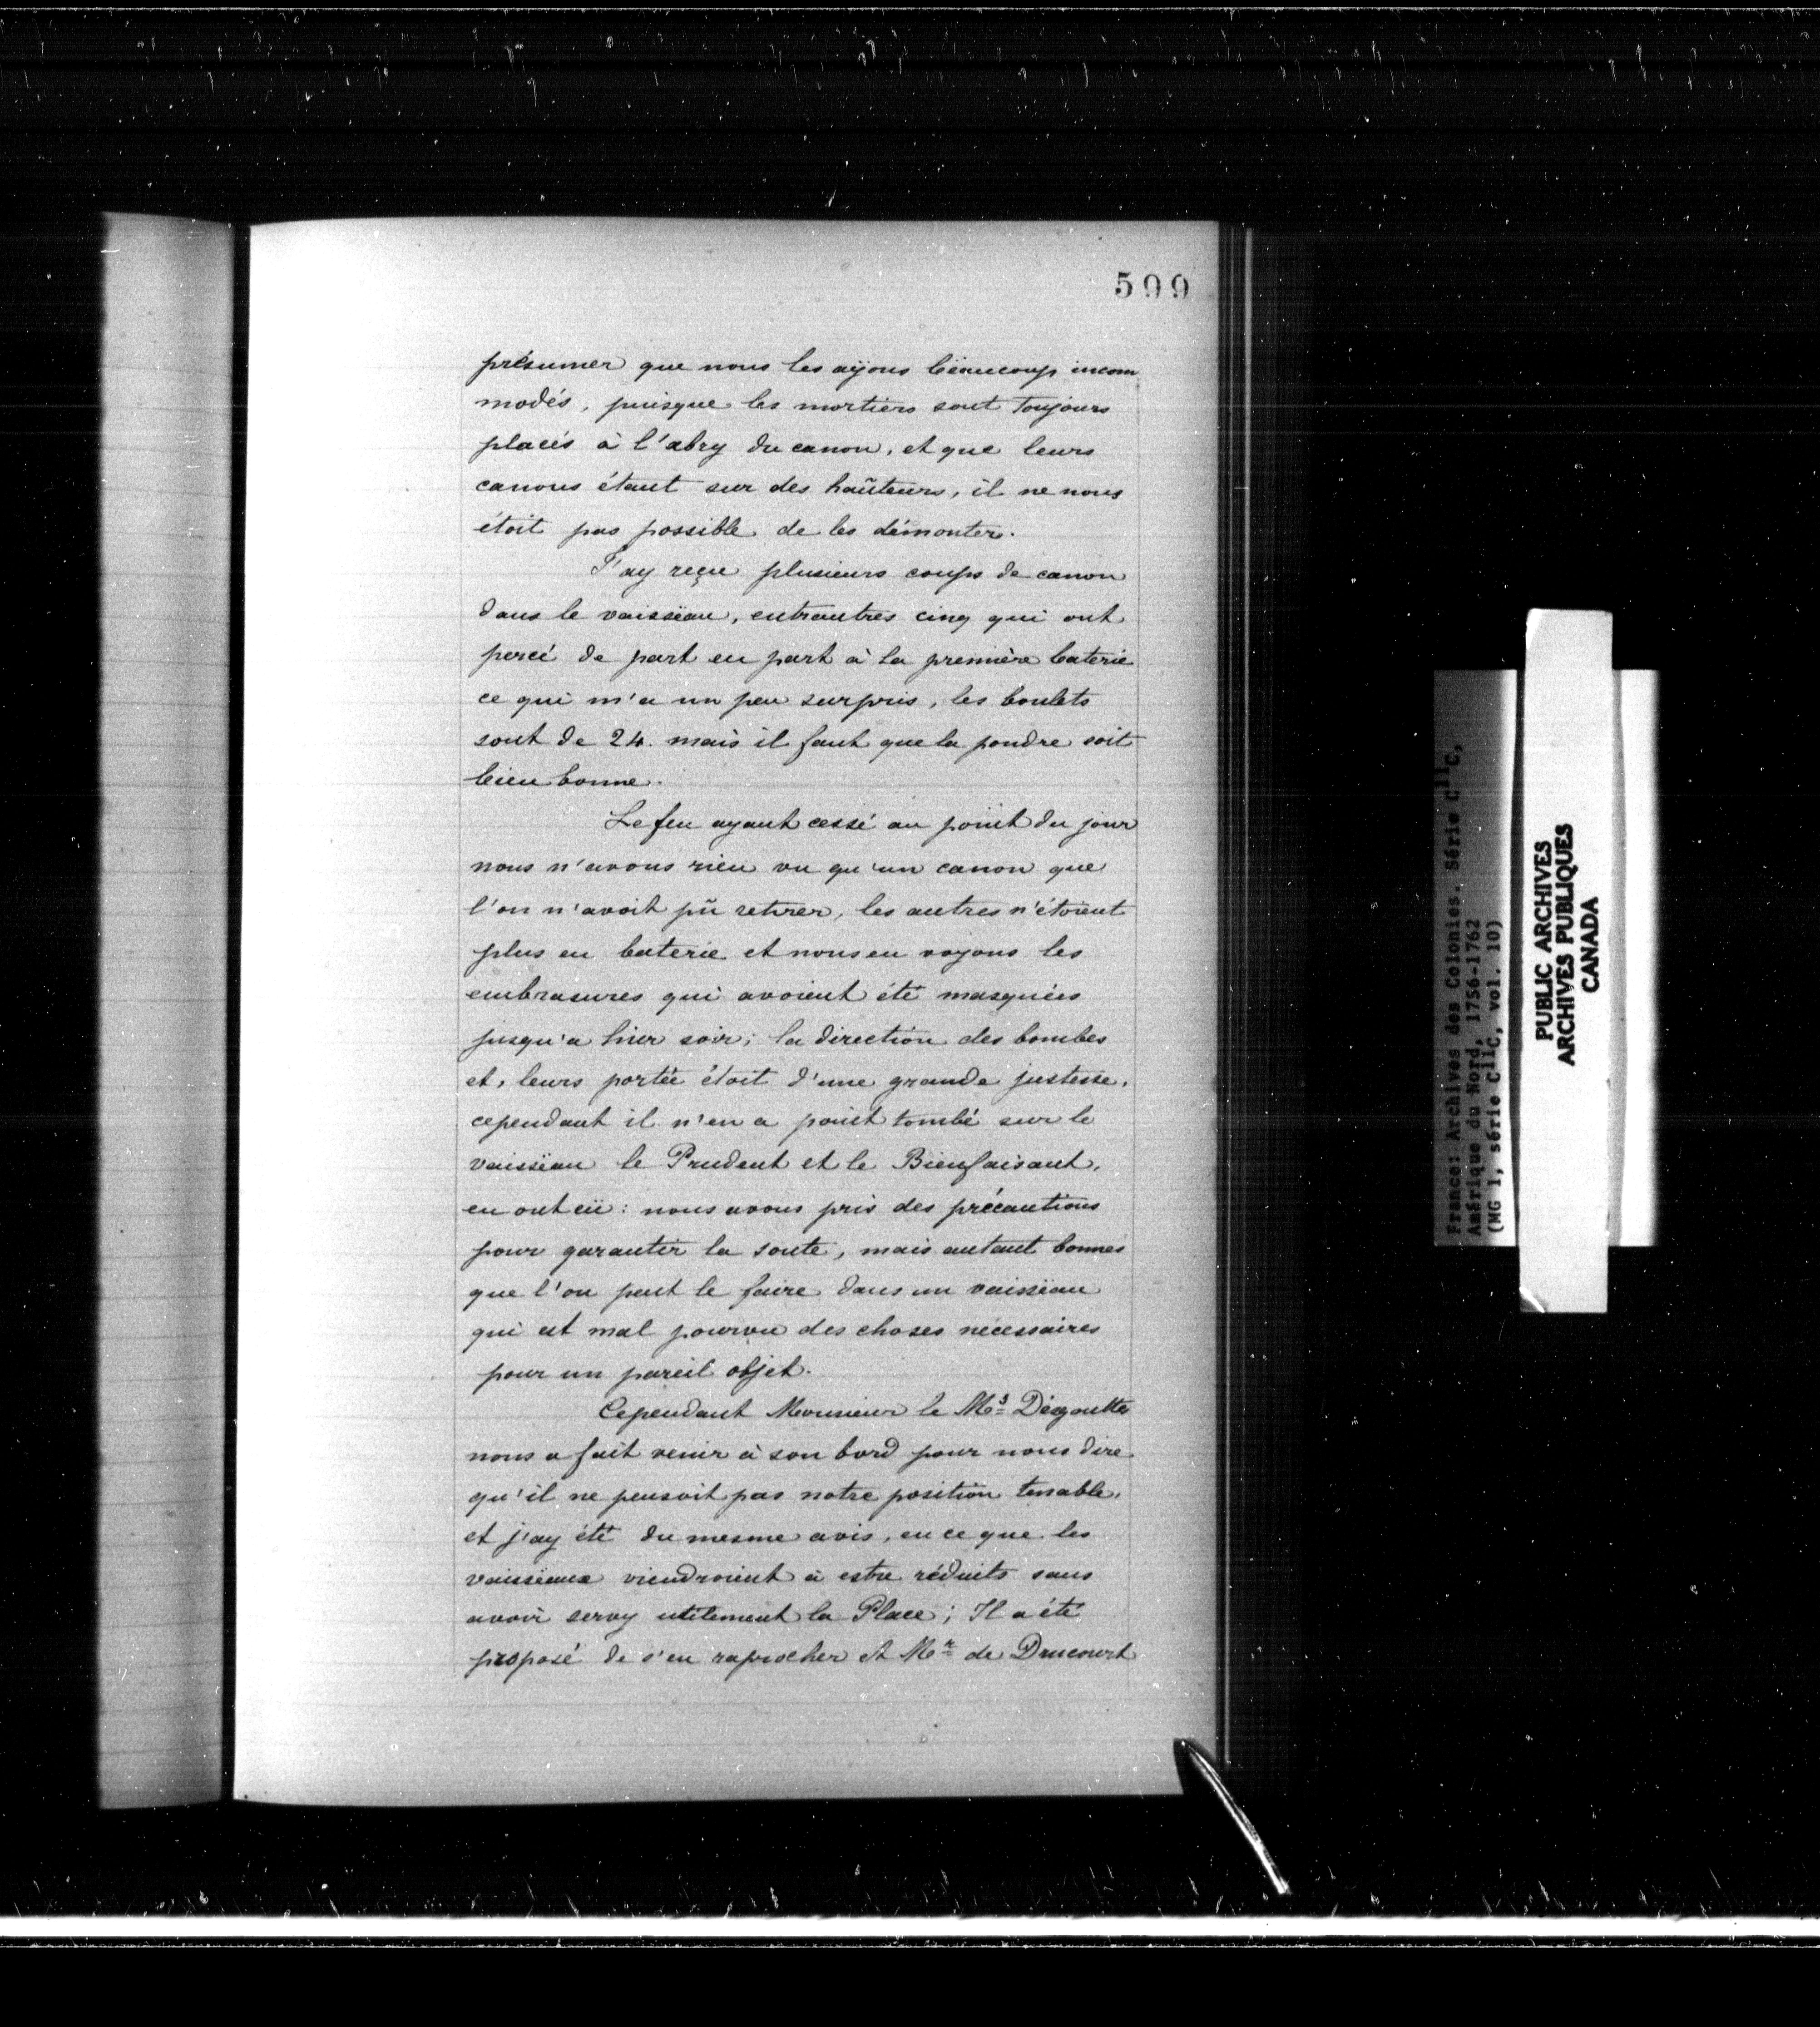 599
présumer que nous les aÿons bëaucoup incom
modés, puisque les mortiers sont toujours
placés à l'abry du canon, et que leurs
canons étant sur des haûteurs, il ne nous
étoit pas possible de les démonter.
J'ay reçu plusieurs coups de canon
dans le vaissëau, entrautres cinq qui ont
percé de part en part à la première baterie
ce qui m'a un peu surpris, les boulets
sont de 24. mais il faut que la poudre soit
bien bonne.
Le feu ayant cessé au point du jour
nous n'avons rien vu qu'un canon que
l'on n'avoit pû retirer, les autres n'étoient
plus en baterie et nous en voyons les
embrasures qui avoient été masquées
jusqu'a hier soir; la direction des bombes
et, leurs portée étoit d'une grande justesse,
cependant il n'en a point tombé sur le
vaissëau le Prudent et le Bienfaisant,
en ont eü: nous avons pris des précautions
pour garantir la soute, mais autant bonnes
que l'on peut le faire dans un vaissëau
qui est mal pourvu des choses nécessaires
pour un pareil objet.
Cependant Monsieur le Mˢ Desgouttes
nous a fait venir à son bord pour nous dire
qu'il ne pensoit pas notre position tenable,
et j'ay été du mesme avis, en ce que les
vaissëaux viendroient à estre réduits sans
avoir servy utilement la Place; Il a été
proposé de s'en raprocher et Mʳ de Drucourt
PUBLIC ARCHIVES
ARCHIVES PUBLIQUES
CANADA
France: Archives des Colonies. Série C11C,
Amérique du Nord, 1756-1762
(MG 1, série C11C, vol. 10)